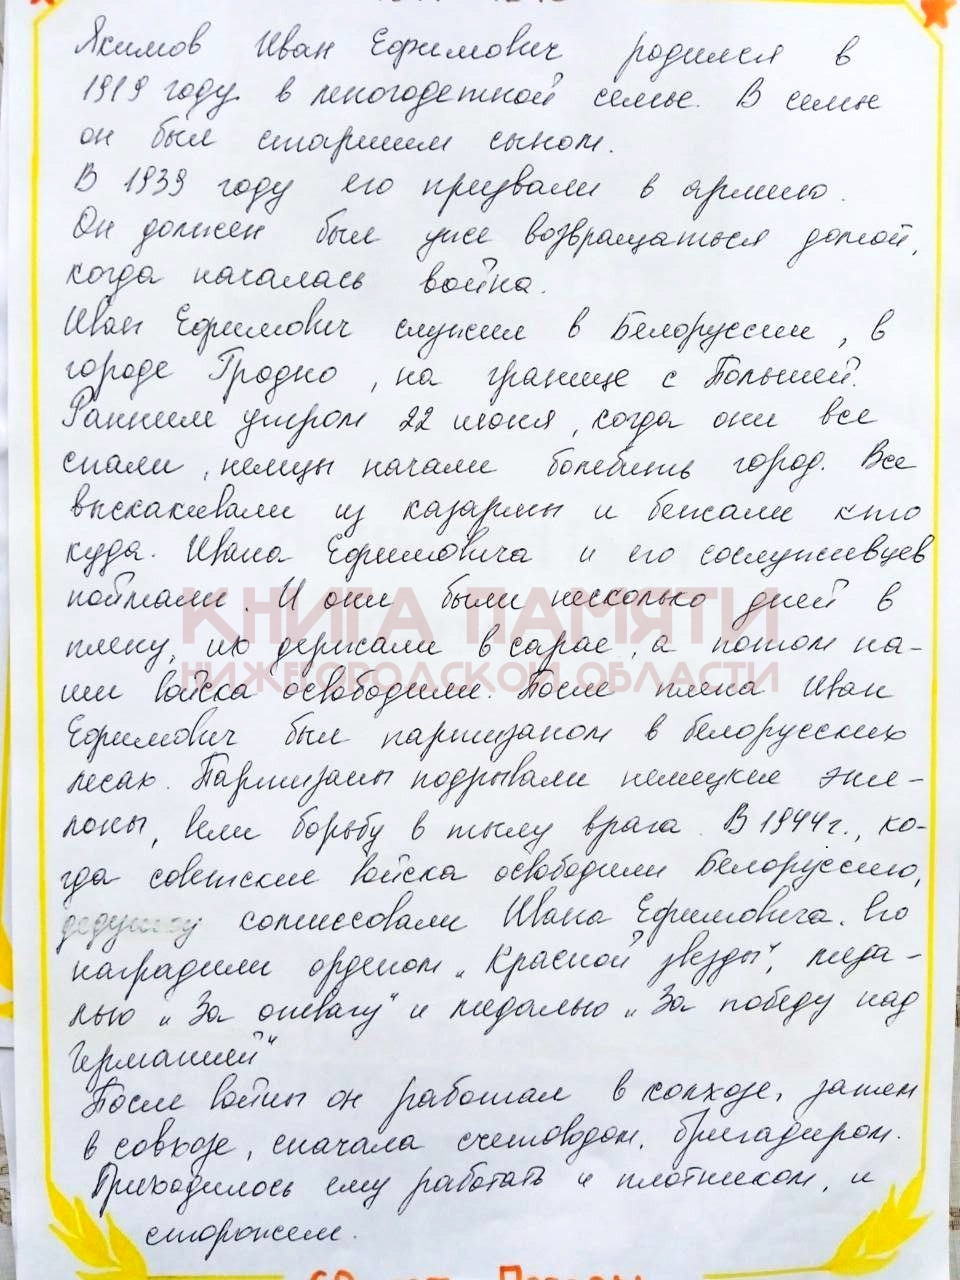 Якимов Иван Ефимович родился в
1919 году в многодетной семье. В семье
он был старшим сыном.
В 1939 году его призвали в армию.
Он должен был уже возвращаться домой,
когда началась война.
Иван Ефимович служил в Белоруссии, в
городе Гродно, на границе с Польшей.
Ранним утром 22 июня, когда они все
спали, немцы начали бомбить город. Все
выскакивали из казармы и бежали кто
куда. Ивана Ефимовича и его сослуживцев
поймали. И они были несколько дней в
КНИГА ПАМЯТИ
плену, их держали в сарае, а потом на-
НИЖЕГОРОДСКОЙ ОБЛАСТИ
ши войска освободили. После плена Иван
Ефимович был партизаном в белорусских
лесах. Партизаны подрывали немецкие эше-
лоны, вели борьбу в тылу врага. В 1944 г., ко-
гда советские войска освободили Белоруссию,
дедушку комиссовали Ивана Ефимовича. Его
наградили орденом „Красной звезды", меда-
лью „За отвагу" и медалью „За победу над
Германией"
После войны он работал в колхозе, затем
в совхозе, сначала счетоводом, бригадиром.
Приходилось ему работать и плотником, и
сторожем.